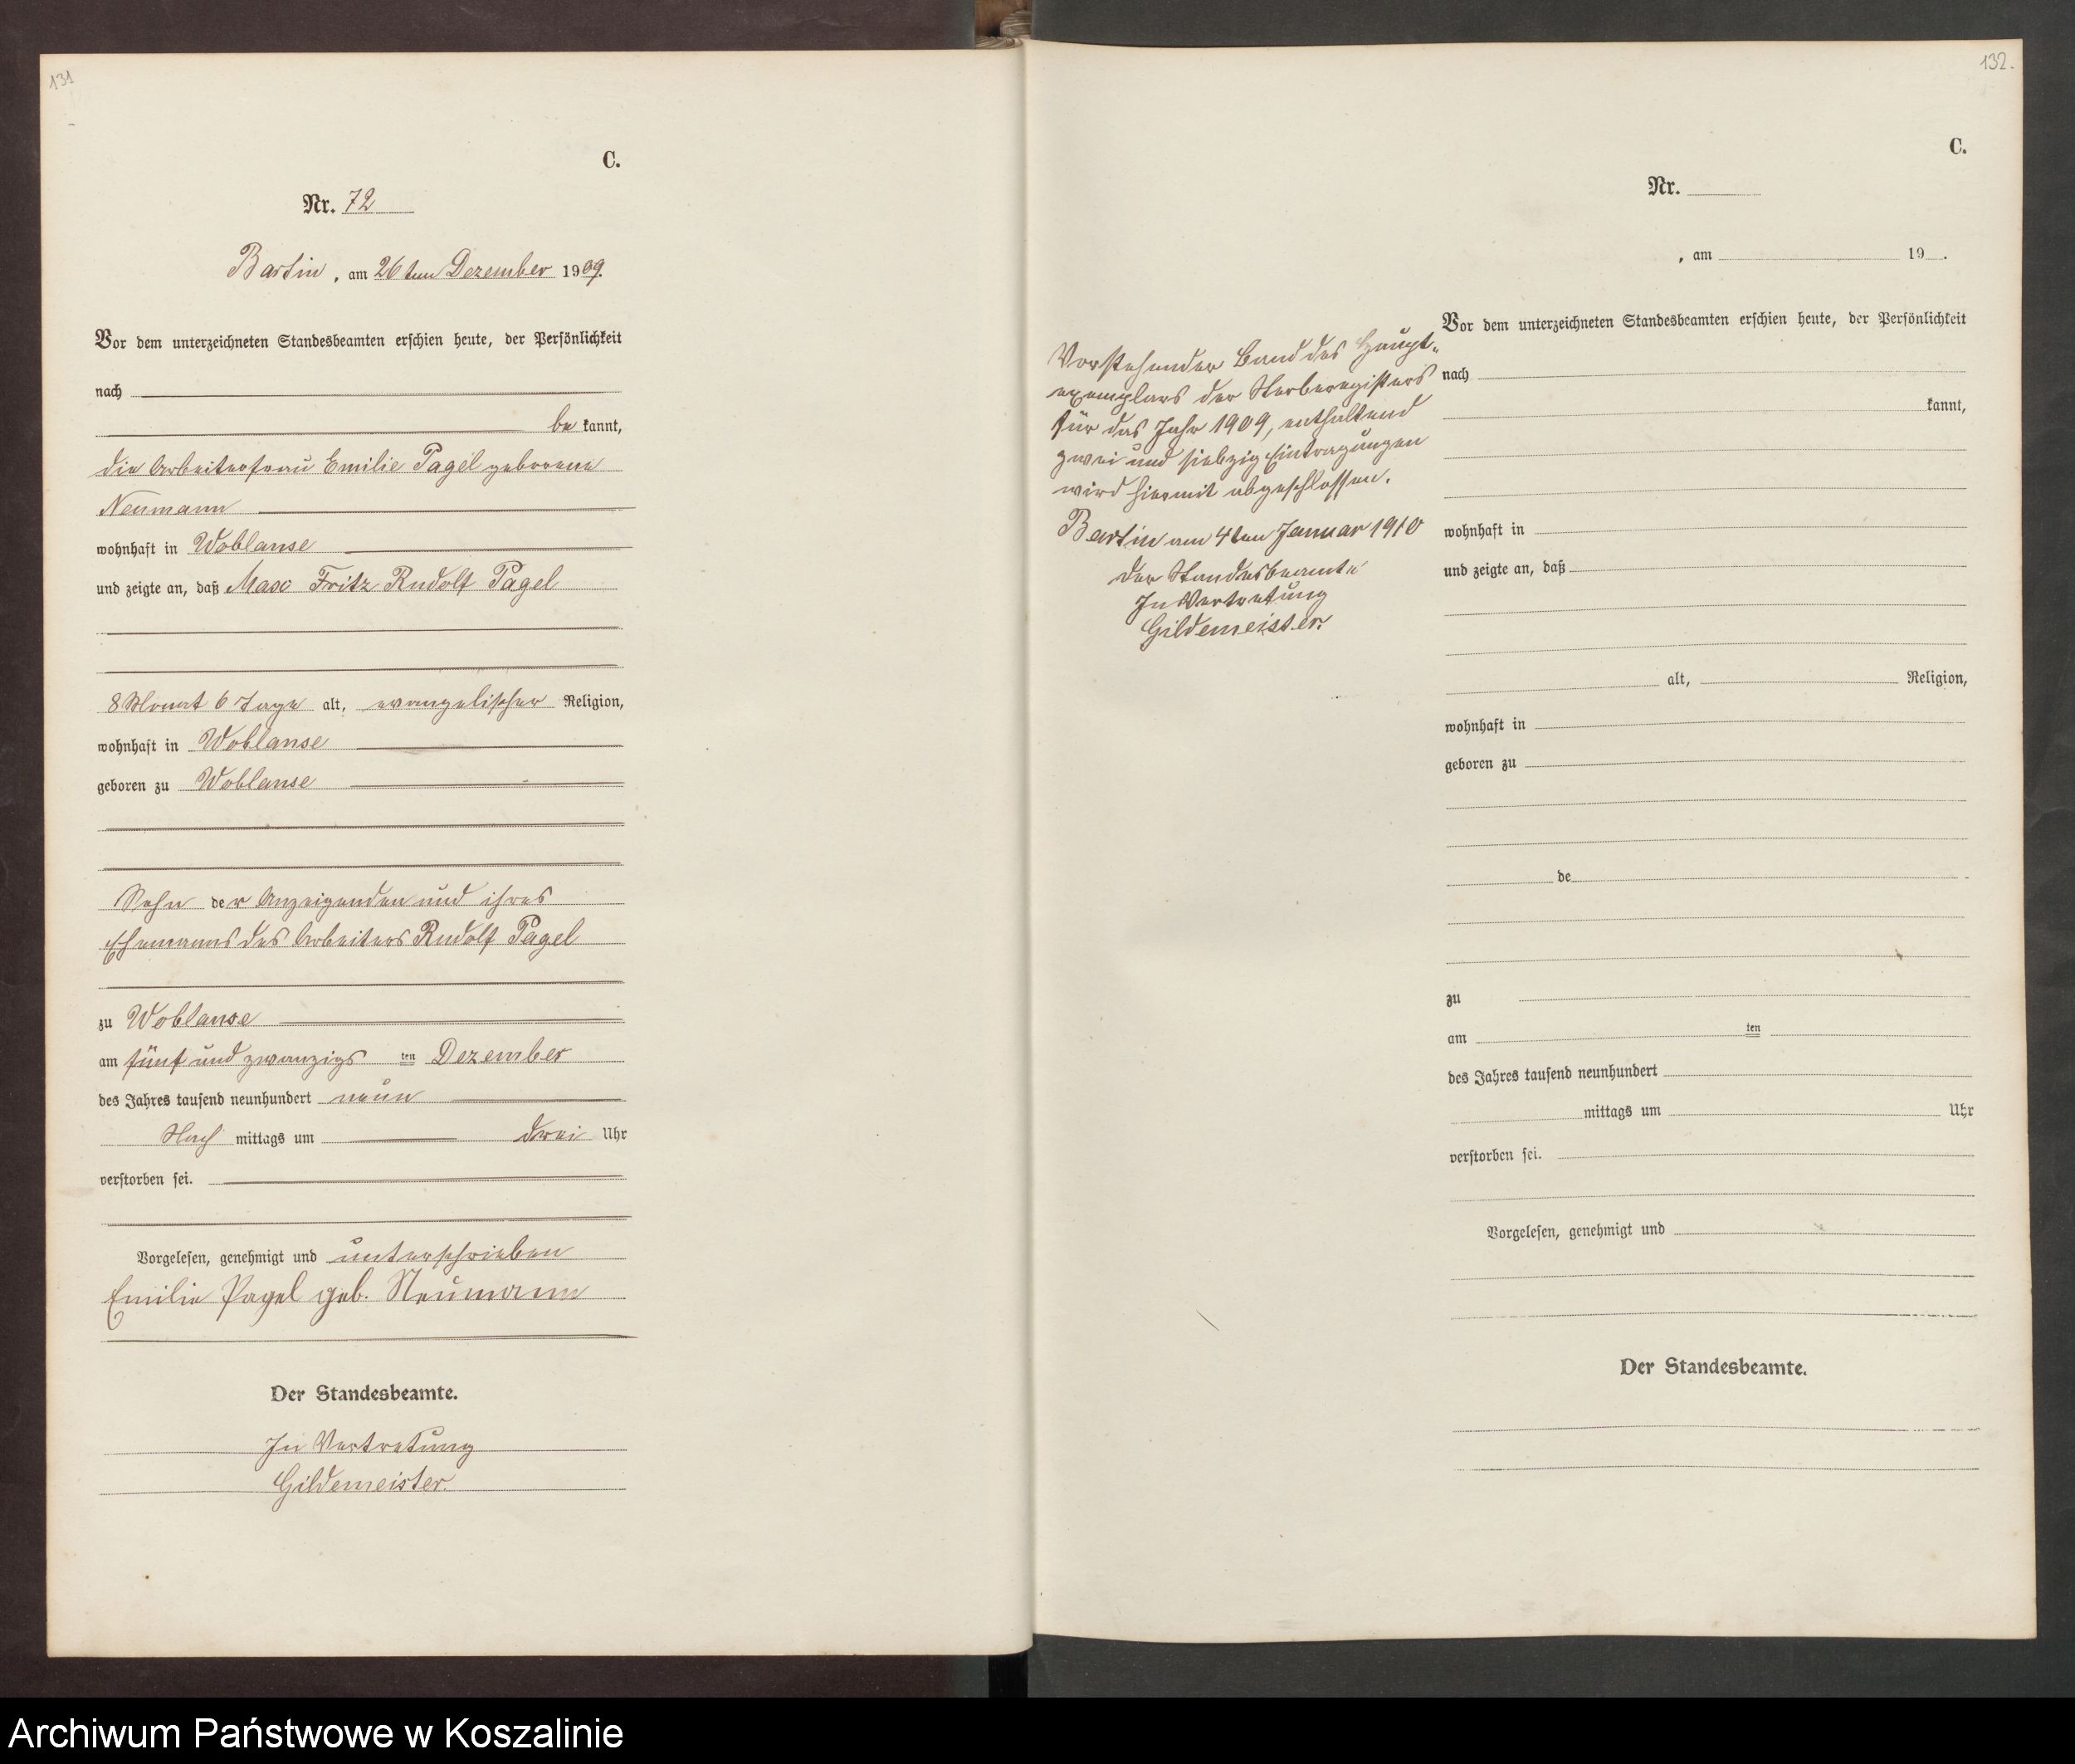 131
C.
Nr. 72
Bartin, am 26ten Dezember 1909.
Vor dem unterzeichneten Standesbeamten erschien heute, der Persönlichkeit
nach
be kannt,
die Arbeiterfrau Emilie Pagel geborene
Neumann
wohnhaft in Woblanse
und zeigte an, daß Max Fritz Rudolf Pagel
8 Monat 6 Tage alt, evangelischer Religion,
wohnhaft in Woblanse
geboren zu Woblanse
Sohn der Anzeigenden und ihres
Ehemanns des Arbeiters Rudolf Pagel
zu Woblanse
am fünf und zwanzigs ten Dezember
des Jahres tausend neunhundert neun
Nach mittags um drei Uhr
verstorben sei.
Vorgelesen, genehmigt und unterschrieben
Emilie Pagel geb. Neumann
Der Standesbeamte.
In Vertretung
Gildemeister.
132.
C.
Nr.
, am 19 .
Vorstehender Band des Haupt-
exemplars der Sterberegisters
für das Jahr 1909, enthaltend
zwei und siebzig Eintragungen
wird hiermit abgeschlossen.
Bartin am 4ten Januar 1910
Der Standesbeamte
In Vertretung
Gildemeister.
Vor dem unterzeichneten Standesbeamten erschien heute, der Persönlichkeit
nach
kannt,
wohnhaft in
und zeigte an, daß
alt, Religion,
wohnhaft in
geboren zu
de
zu
am ten
des Jahres tausend neunhundert
mittags um Uhr
verstorben sei.
Vorgelesen, genehmigt und
Der Standesbeamte.
Archiwum Państwowe w Koszalinie